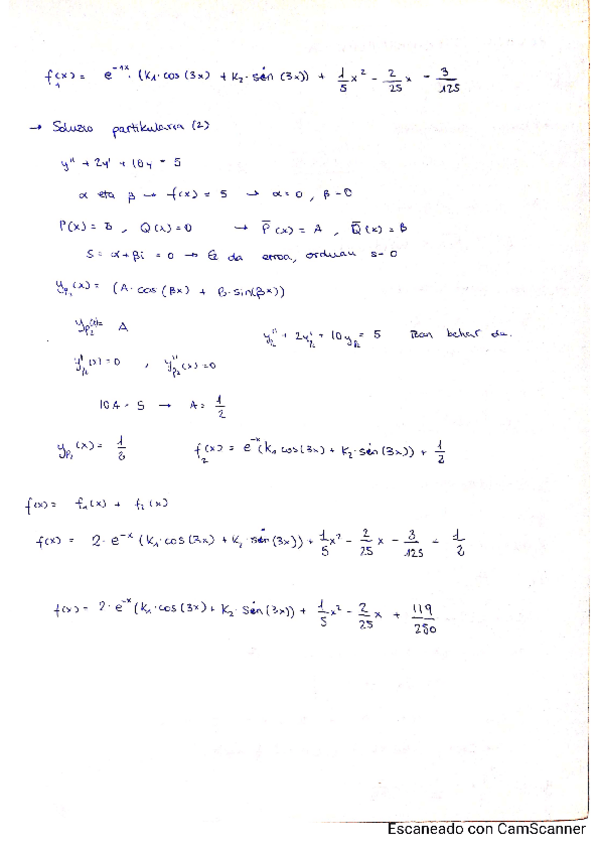 f₁(x) = e^{-1x} · (K₁·cos(3x) + K₂·sin(3x)) + 1/5 x² - 2/25 x - 3/125
→ Soluzio partikularra (2)
y'' + 2y' + 10y = 5
α eta β → f(x) = 5 → α = 0, β = 0
P(x) = 5, Q(x) = 0 → P̄(x) = A, Q̄(x) = B
S = α+βi = 0 → Ez da erroa, orduan s = 0
(x) = (A·cos(βx) + B·sin(βx))
y_{p₂}(x) = A
y''_{p₂} + 2y'_{p₂} + 10y_{p₂} = 5 Izan behar da.
y'_{p₂}(x) = 0, y''_{p₂}(x) = 0
10A = 5 → A = 1/2
(x) = 1/2 f₂(x) = e^{-x}(K₁ cos(3x) + K₂·sin(3x)) + 1/2
f(x) = f₁(x) + f₂(x)
f(x) = 2·e^{-x} (K₁·cos(3x) + K₂·sin(3x)) + 1/5 x² - 2/25 x - 3/125 1/2
f(x) = 2·e^{-x} (K₁·cos(3x) + K₂·sin(3x)) + 1/5 x² - 2/25 x + 119/250
Escaneado con CamScanner